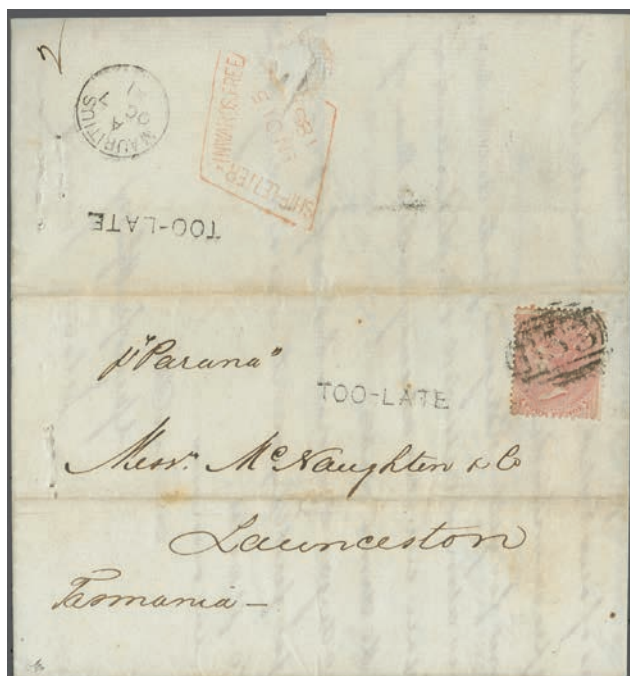 2
MAURITIUS
OC 4
SHIP LETTER - INWARDS FREE
TOO-LATE
pr "Parana"
TOO-LATE
Messrs. McNaughten & Co
Launceston
Tasmania —